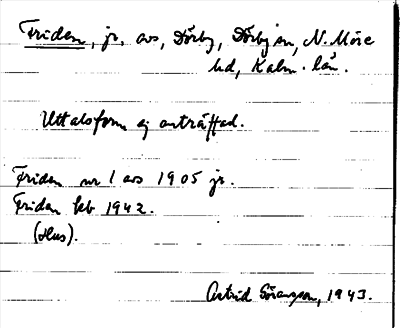 Friden, jr, avs, Dörby, Dörby sn, N. Möre
hd, Kalm. län.
Uttalsform ej anträffad.
Friden nr 1 avs 1905 jr.
Friden lht 1942.
(Hus).
Astrid Göransson, 1943.